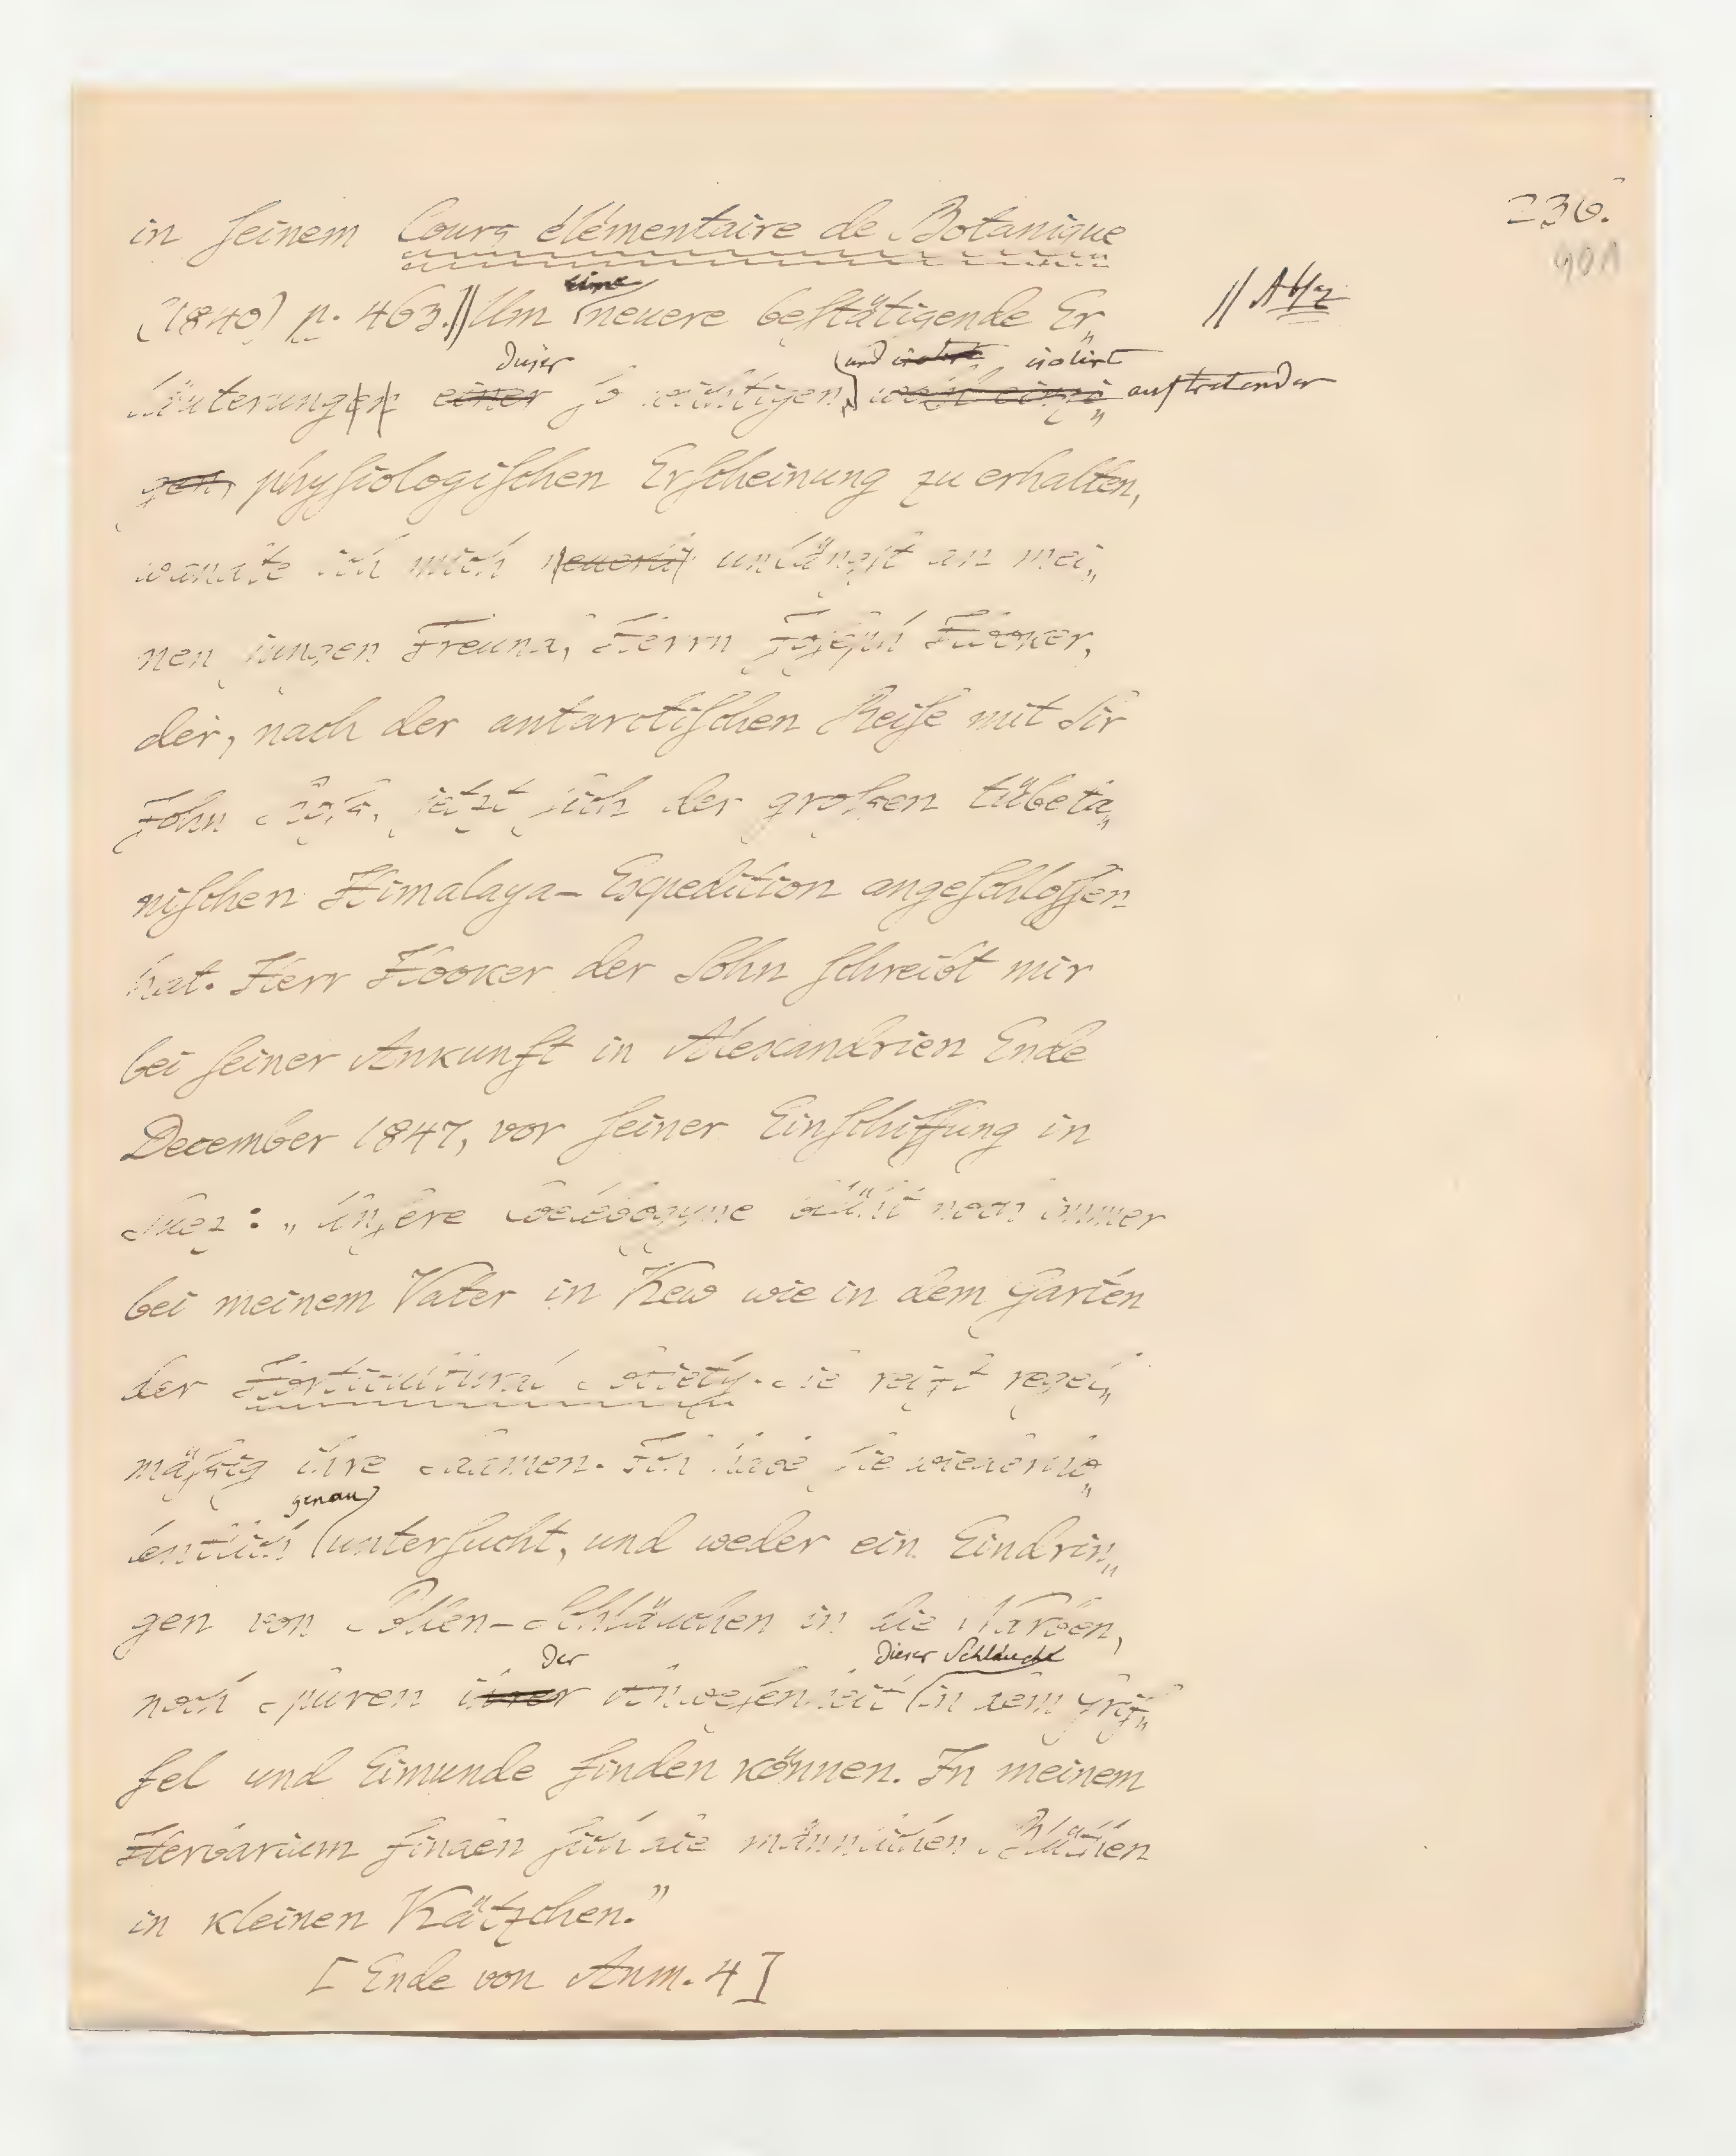 236.
401
in seinem Cours élémentaire de Botanique
(1840) p. 463. || Um neuere bestätigende Er„ || Abs
eine
läuterungen einer so wichtigen, auftretender
dieser und isolirt
gen, physiologischen Erscheinung zu erhalten,
wandte ich mich unlängst an mei„
nen jungen Freund, Herrn Joseph Hooker,
der, nach der antarctischen Reise mit Sir
John Roß, jetzt sich der großen tübeta„
nischen Himalaya-Expedition angeschlossen
hat. Herr Hooker der Sohn schreibt mir
bei seiner Ankunft in Alexandrien Ende
December 1847, vor seiner Einschiffung in
Suez: „Unsere Coelebogyne blüht noch immer
bei meinem Vater in Kew wie in dem Garten
der Horticultural Society. Sie reift regel„
mäßig ihre Saamen. Ich habe sie wiederho„
genau
lentlich untersucht, und weder ein Eindrin„
gen von Pollen-Schläuchen in die Narben,
der dieser Schläuche
noch Spuren ihrer Anwesenheit in dem Grif„
fel und Eimunde finden können. In meinem
Herbarium finden sich die männlichen Blüthen
in kleinen Kätzchen."
[Ende von Anm. 4]